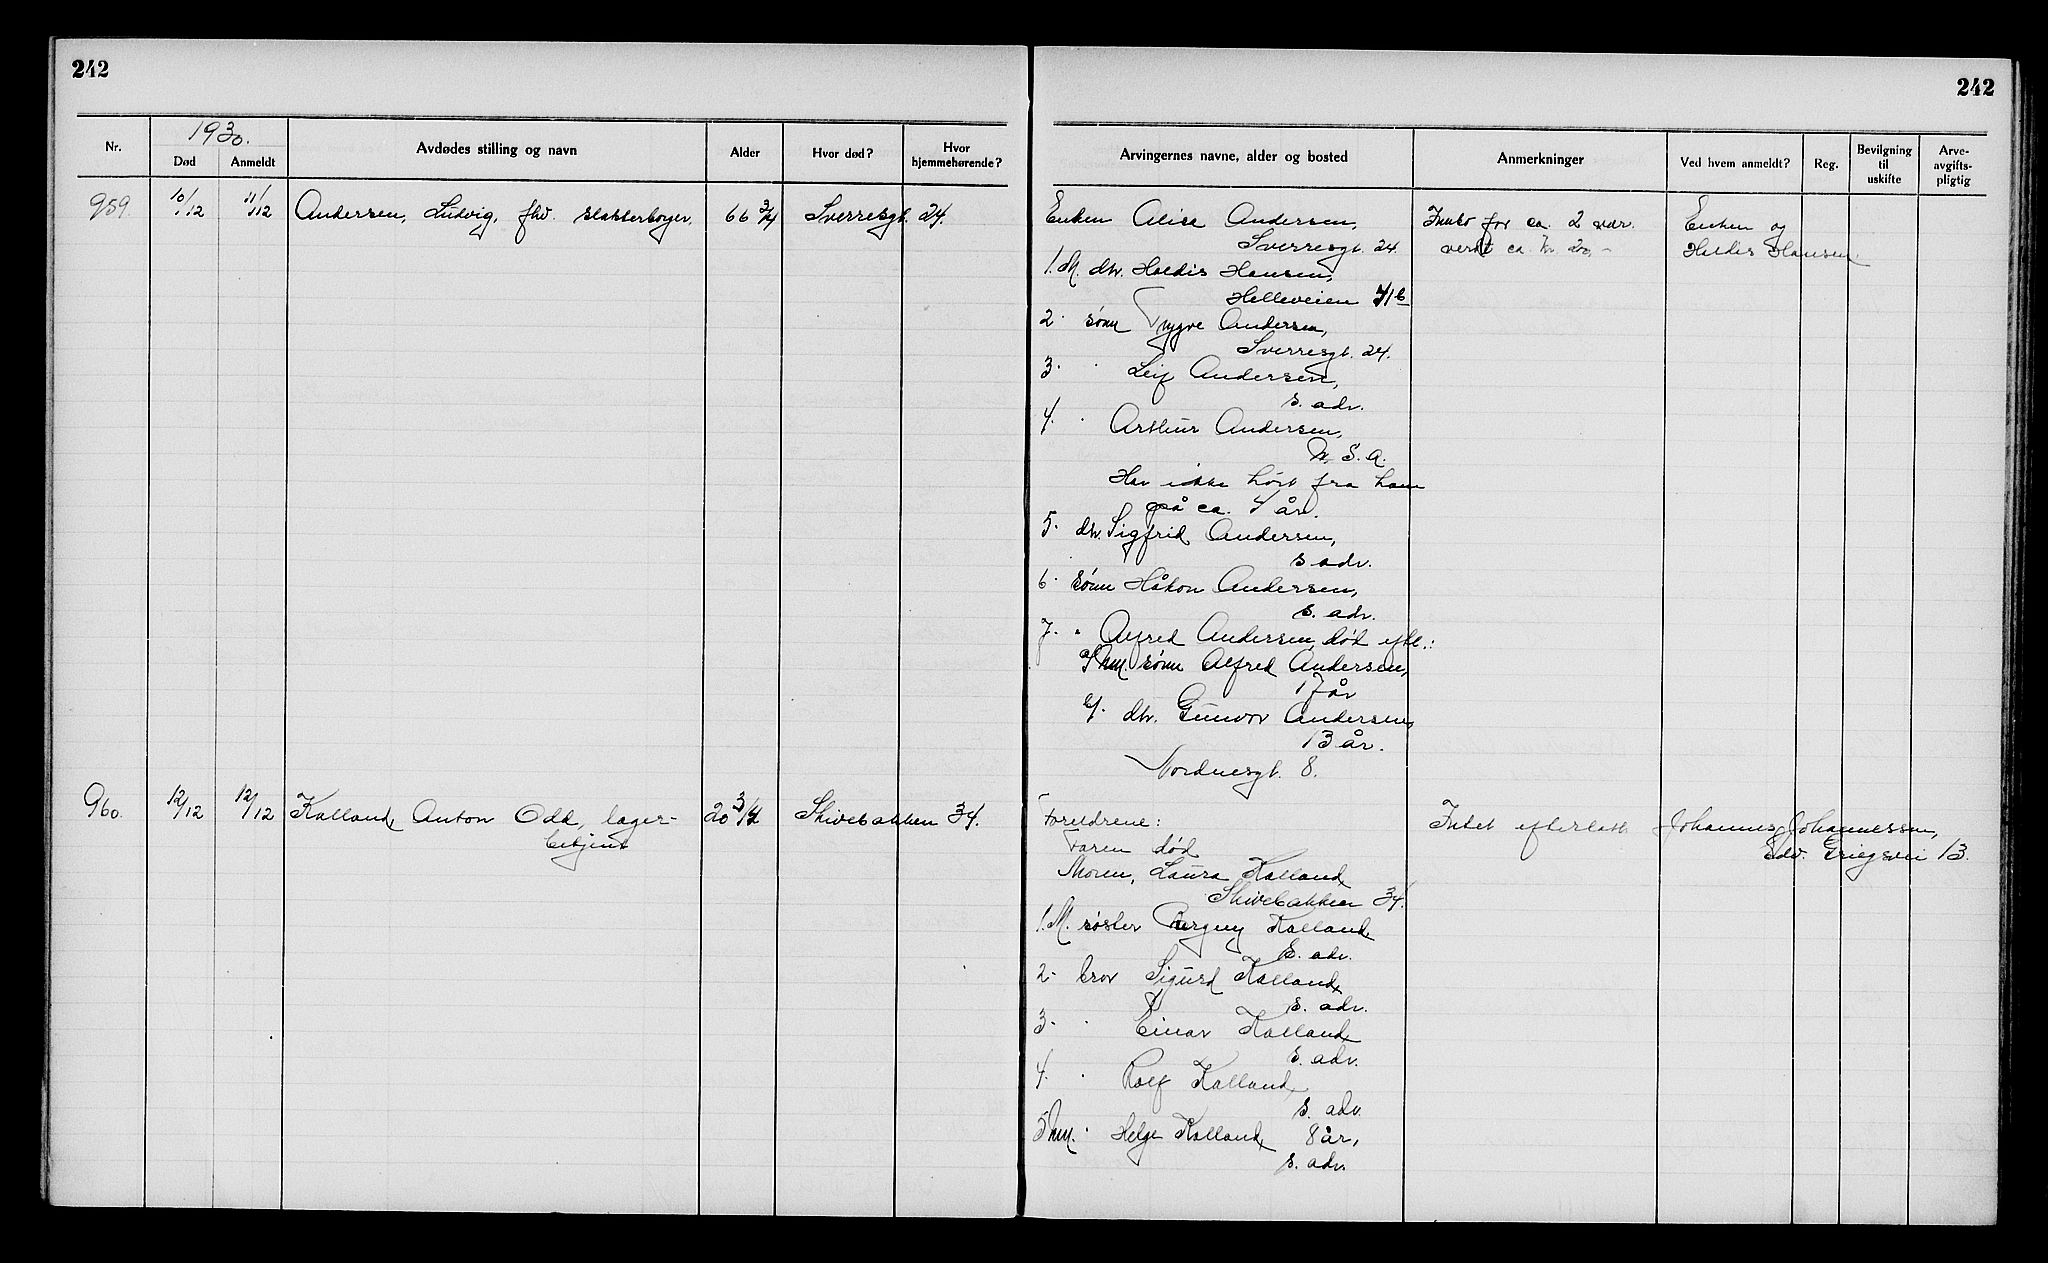 242
242
Nr.
1930.
Død
Anmeldt
Avdødes stilling og navn
Alder
Hvor død?
Hvor hjemmehørende?
Arvingernes navne, alder og bosted
Anmerkninger
Ved hvem anmeldt?
Reg.
Bevilgning til uskifte
Arve-avgifts-pligtig
959. 10/12 11/12 Andersen, Ludvig, fhv. slakterborger. 66 3/4 Sverresgt. 24.
Enken Alise Andersen,
Sverresgt. 24
1. M. dtr. Haldis Hansen,
Helleveien 71 b
2. sønn Trygve Andersen,
Sverresgt. 24.
3. " Leif Andersen,
s. adr.
4. " Arthur Andersen,
U. S. A.
Har ikke hørt fra ham
på ca. 4 år.
5. dtr. Sigfrid Andersen,
s adr.
6. sønn Håkon Andersen,
s. adr.
7. " Alfred Andersen, død eftl.:
a/ Um. sønn Alfred Andersen,
17 år
b/ dtr. Gunvor Andersen,
13 år.
Nordnesgt. 8.
Innbo for ca. 2 vær.
verdt ca. kr.
Enken og
Haldis Hansen.
960. 12/12 12/12 Kalland, Anton Odd, lager-
betjent
20 3/4 Skivebakken 34.
Foreldrene:
Faren død
Moren, Laura Kalland,
Skivebakken 34.
1. M. søster Kalland,
s. adr.
2. bror Sigurd Kalland,
s. adr.
3. " Einar Kalland,
s. adr.
4. " Rolf Kalland,
s. adr.
5 Um. " Helge Kalland, 8 år,
s. adr.
Intet efterlatt
Johannes Johannessen,
Edv. Griegsvei 13.